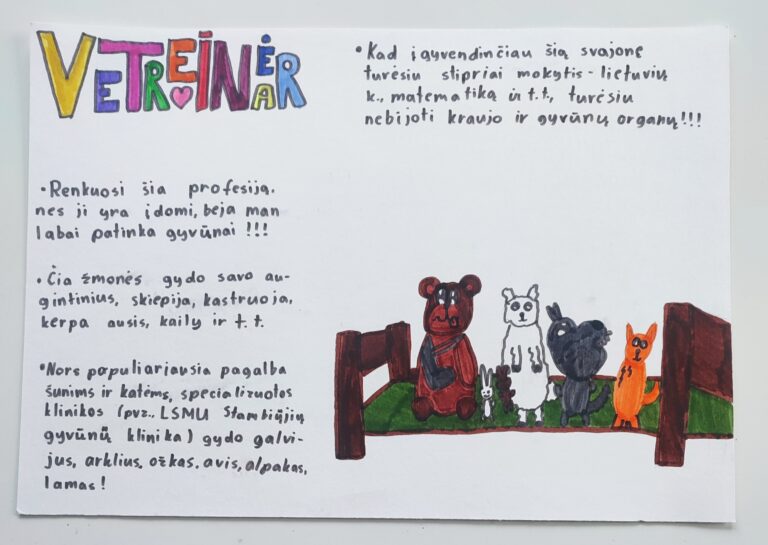 VETREINĖAR
• Renkuosi šia profesiją,
nes ji yra įdomi, beja man
labai patinka gyvūnai !!!
• Čia žmonės gydo savo au-
gintinius, skiepija, kastruoja,
kerpa ausis, kailų ir t.t.
• Nors populiariausia pagalba
šunims ir katėms, specializuotos
klinikos (pvz., LSMU Stambiųjių
gyvūnų klinika) gydo galvi-
jus, arklius, ožkas, avis, alpakas,
lamas!
• Kad įgyvendinčiau šią svajonę
turėsiu stipriai mokytis - lietuvių
k., matematiką ir t.t., turėsiu
nebijoti kraujo ir gyvūnų organų!!!